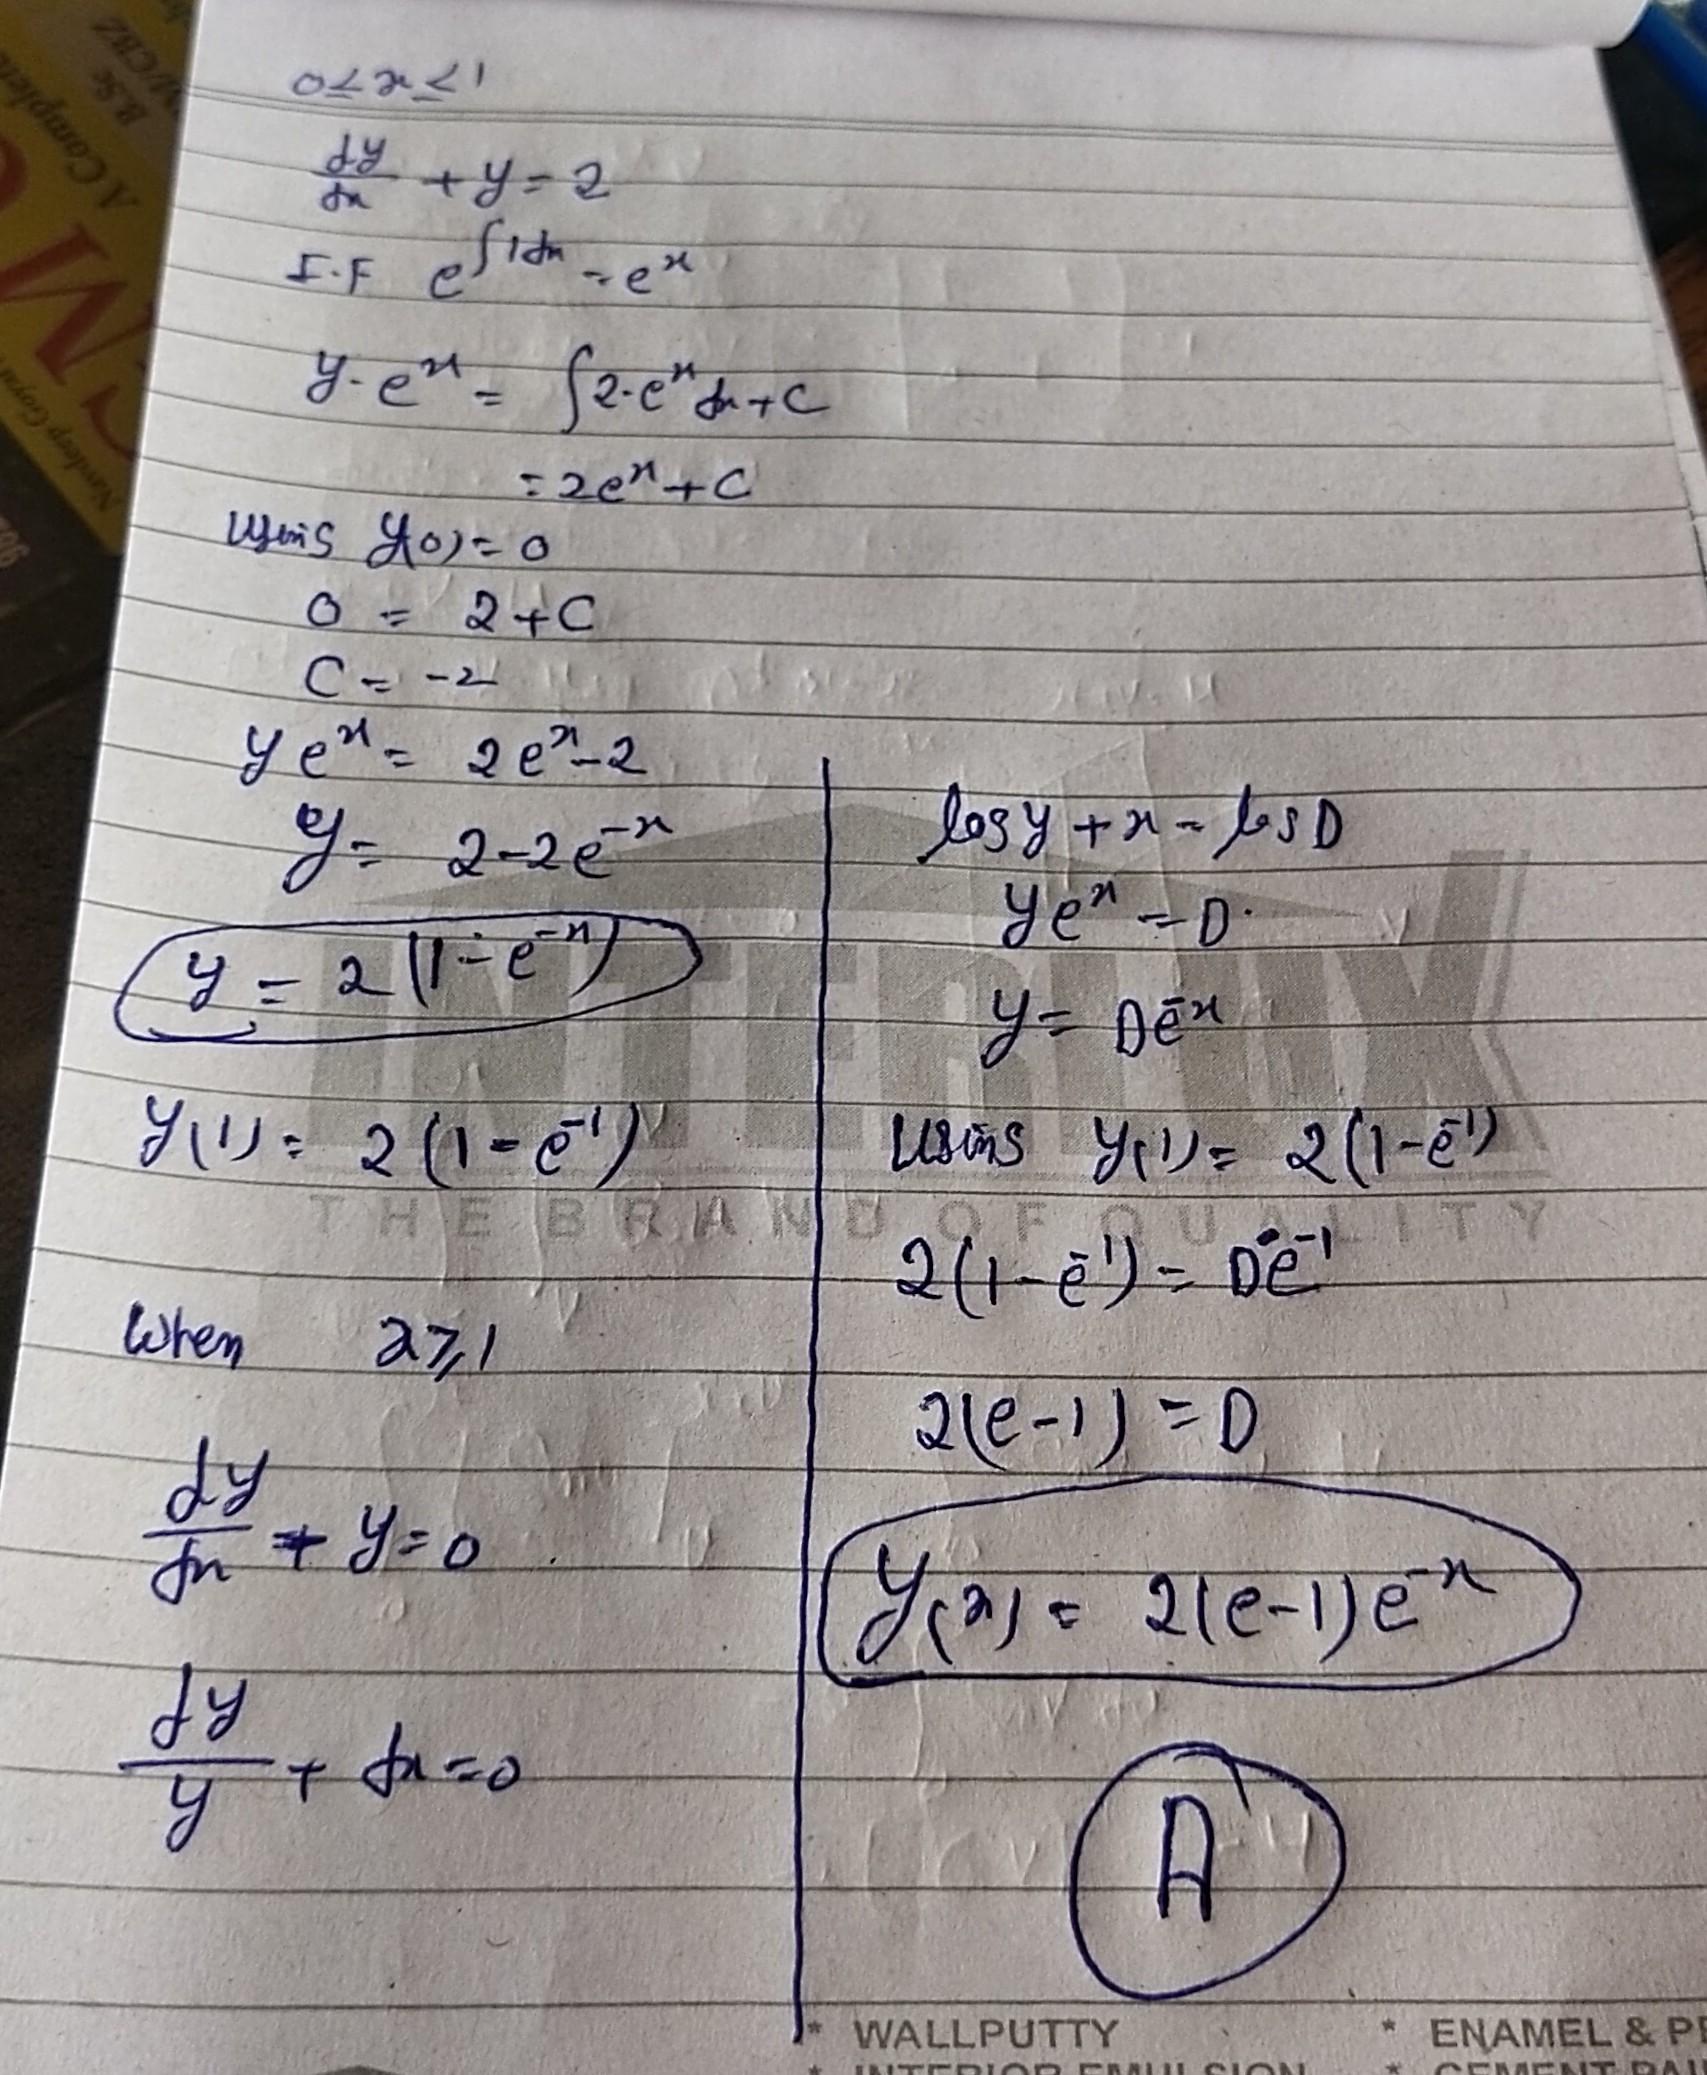 0≤x≤1
dy/dx + y = 2
I.F e^∫1dx = e^x
y·e^x = ∫2·e^x dx + C
= 2e^x + C
Using y(0) = 0
0 = 2 + C
C = -2
y e^x = 2e^x - 2
y = 2 - 2e^-x
y = 2(1 - e^-x)
y(1) = 2(1 - e^-1)
When x ≥ 1
dy/dx + y = 0
dy/y + dx = 0
log y + x = log D
ye^x = D.
y = De^-x
Using y(1) = 2(1 - e^-1)
2(1 - e^-1) = De^-1
2(e - 1) = D
y(x) = 2(e - 1)e^-x
A
THE BRAND OF QUALITY
* WALLPUTTY
* ENAMEL &
* INTERIOR EMULSION
* CEMENT
A Complete
B.Sc